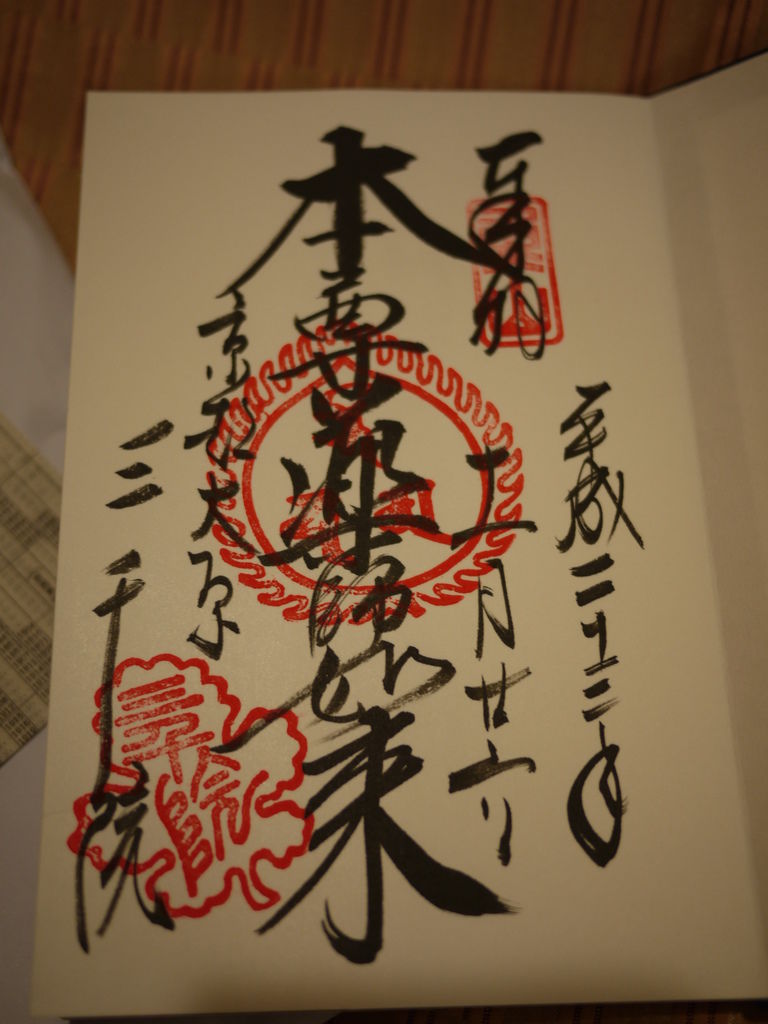 奉拝
平成二十三年
十一月廿
本尊薬師如来
京都大原
三千院
三千院